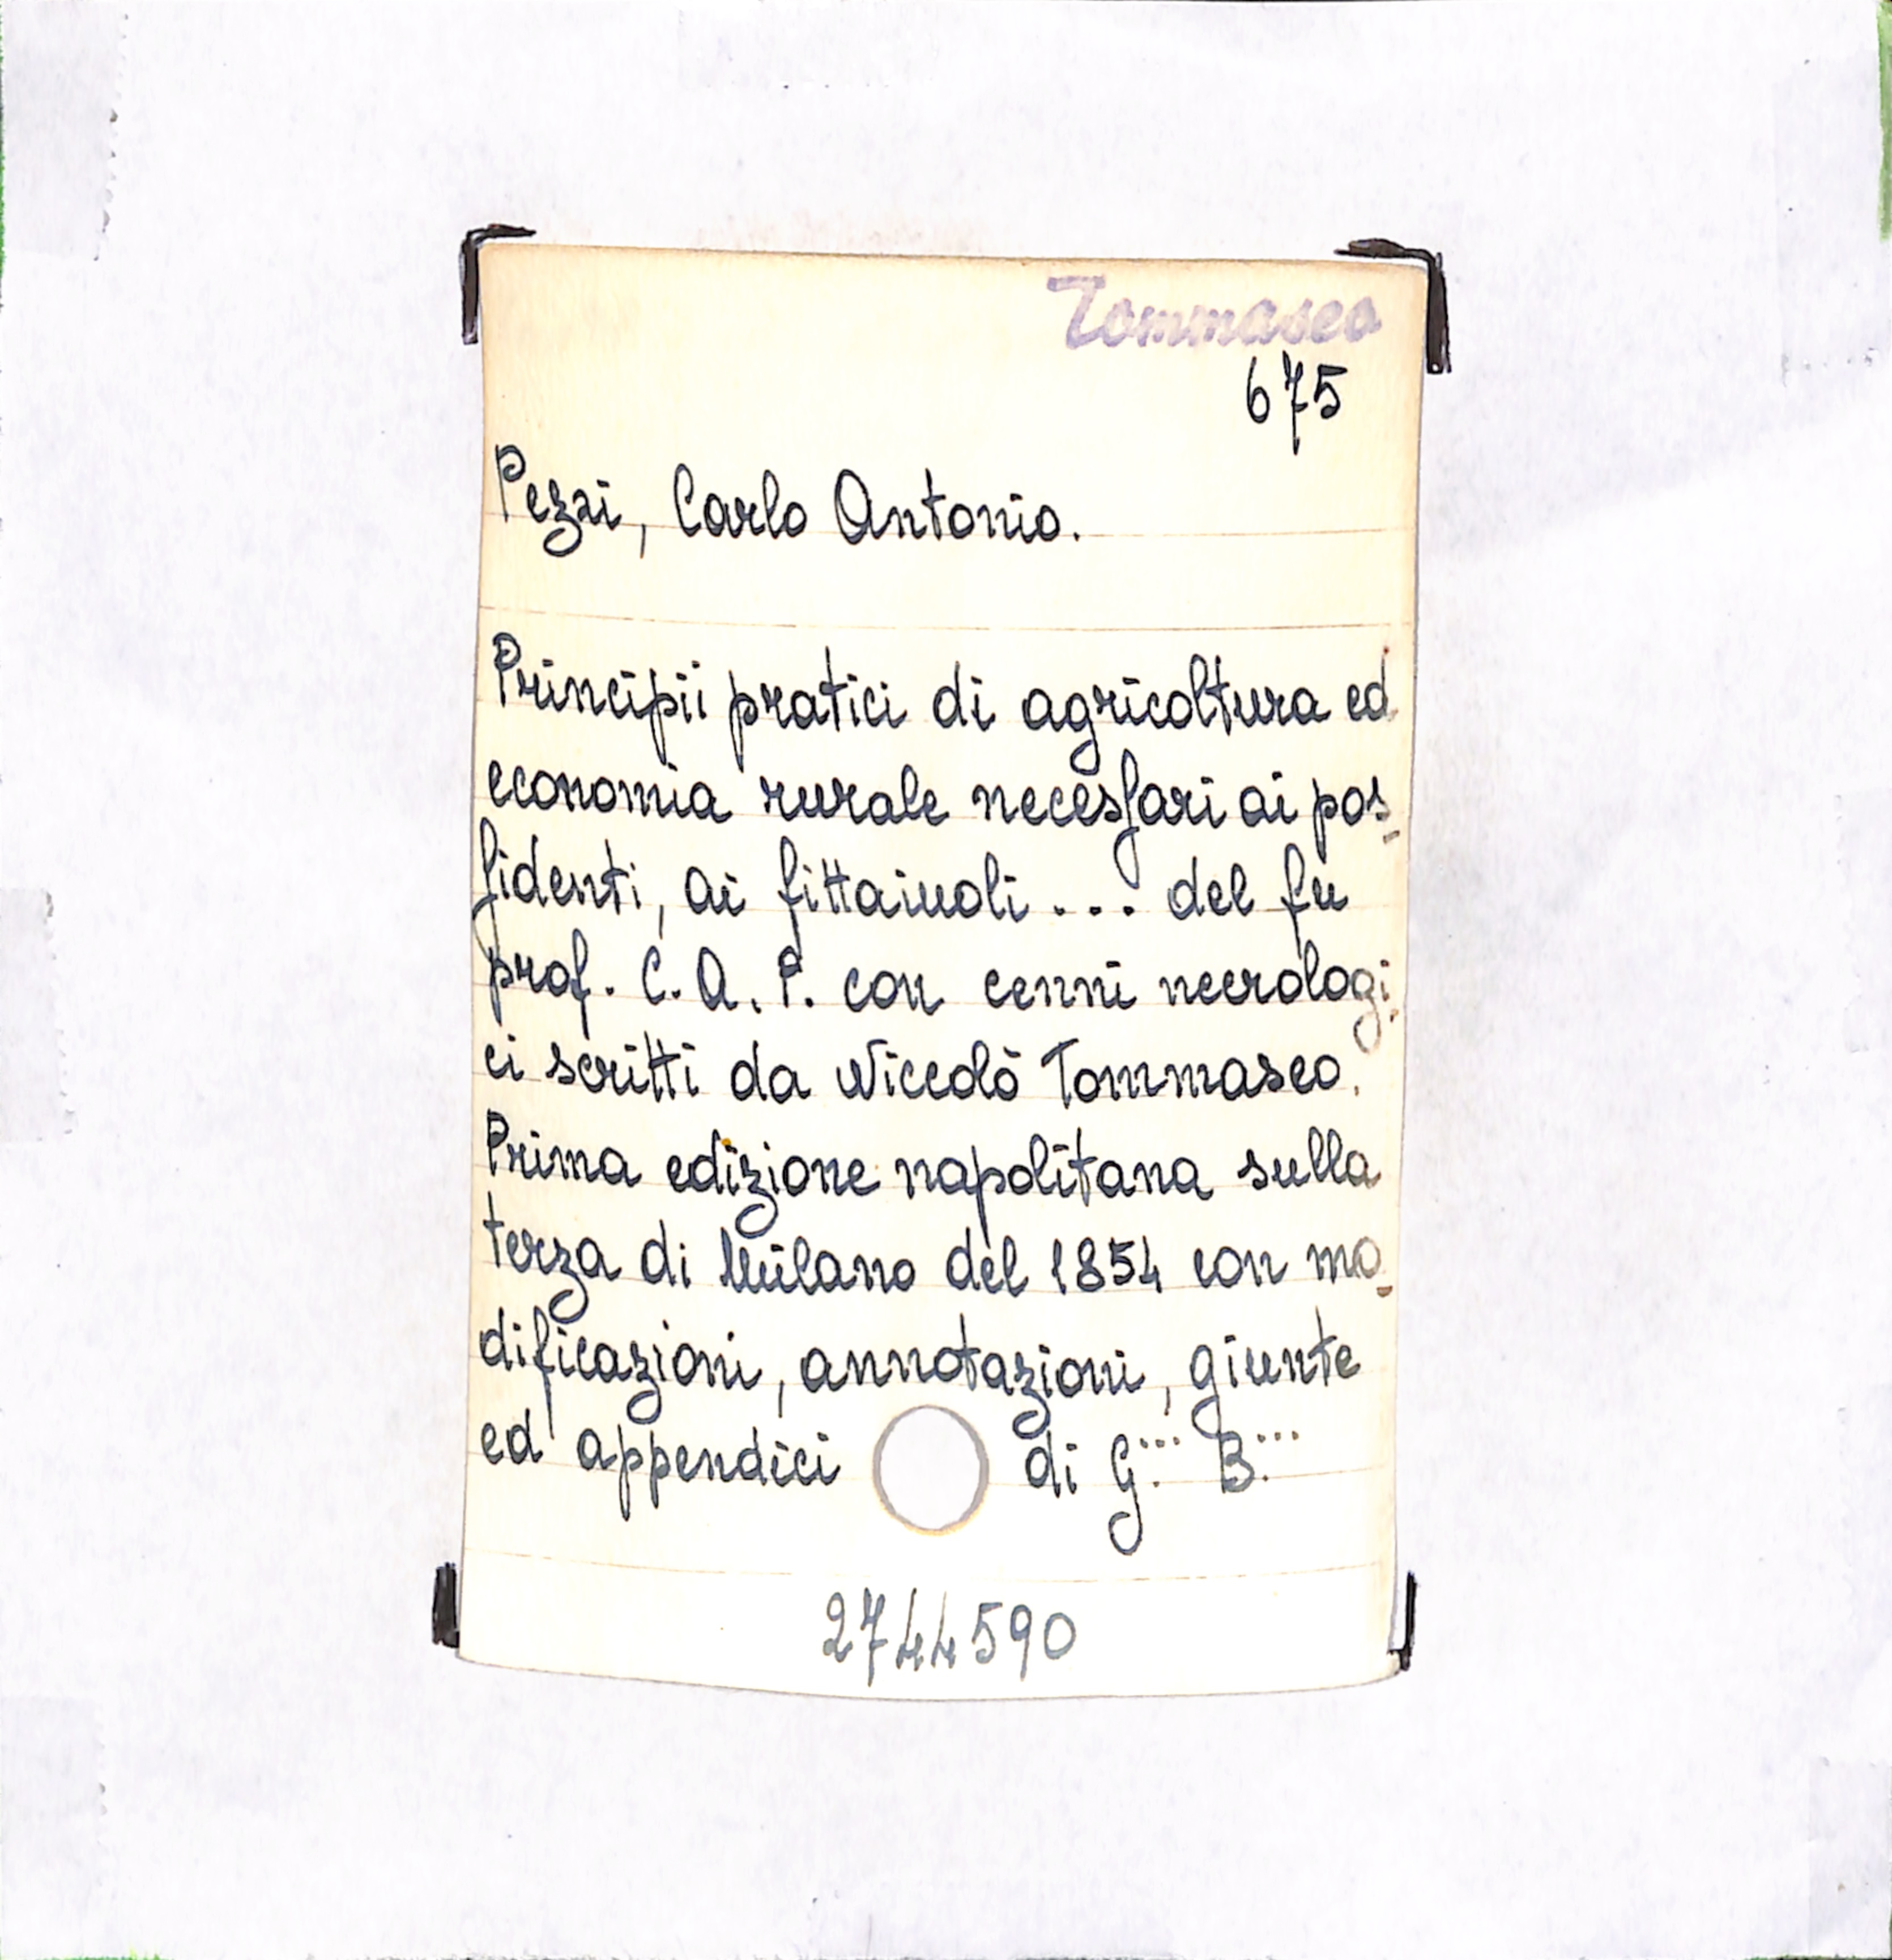 Tommaseo
675
Pezzi, Carlo Antonio.
Principii pratici di agricoltura ed
economia rurale necessari ai pos-
sidenti, ai fittaiuoli ... del fu
prof. C. A. P. con cenni necrologi-
ci scritti da Niccolò Tommaseo.
Prima edizione napolitana sulla
terza di Milano del 1854 con mo-
dificazioni, annotazioni, giunte
ed appendici di G... B...
2744590